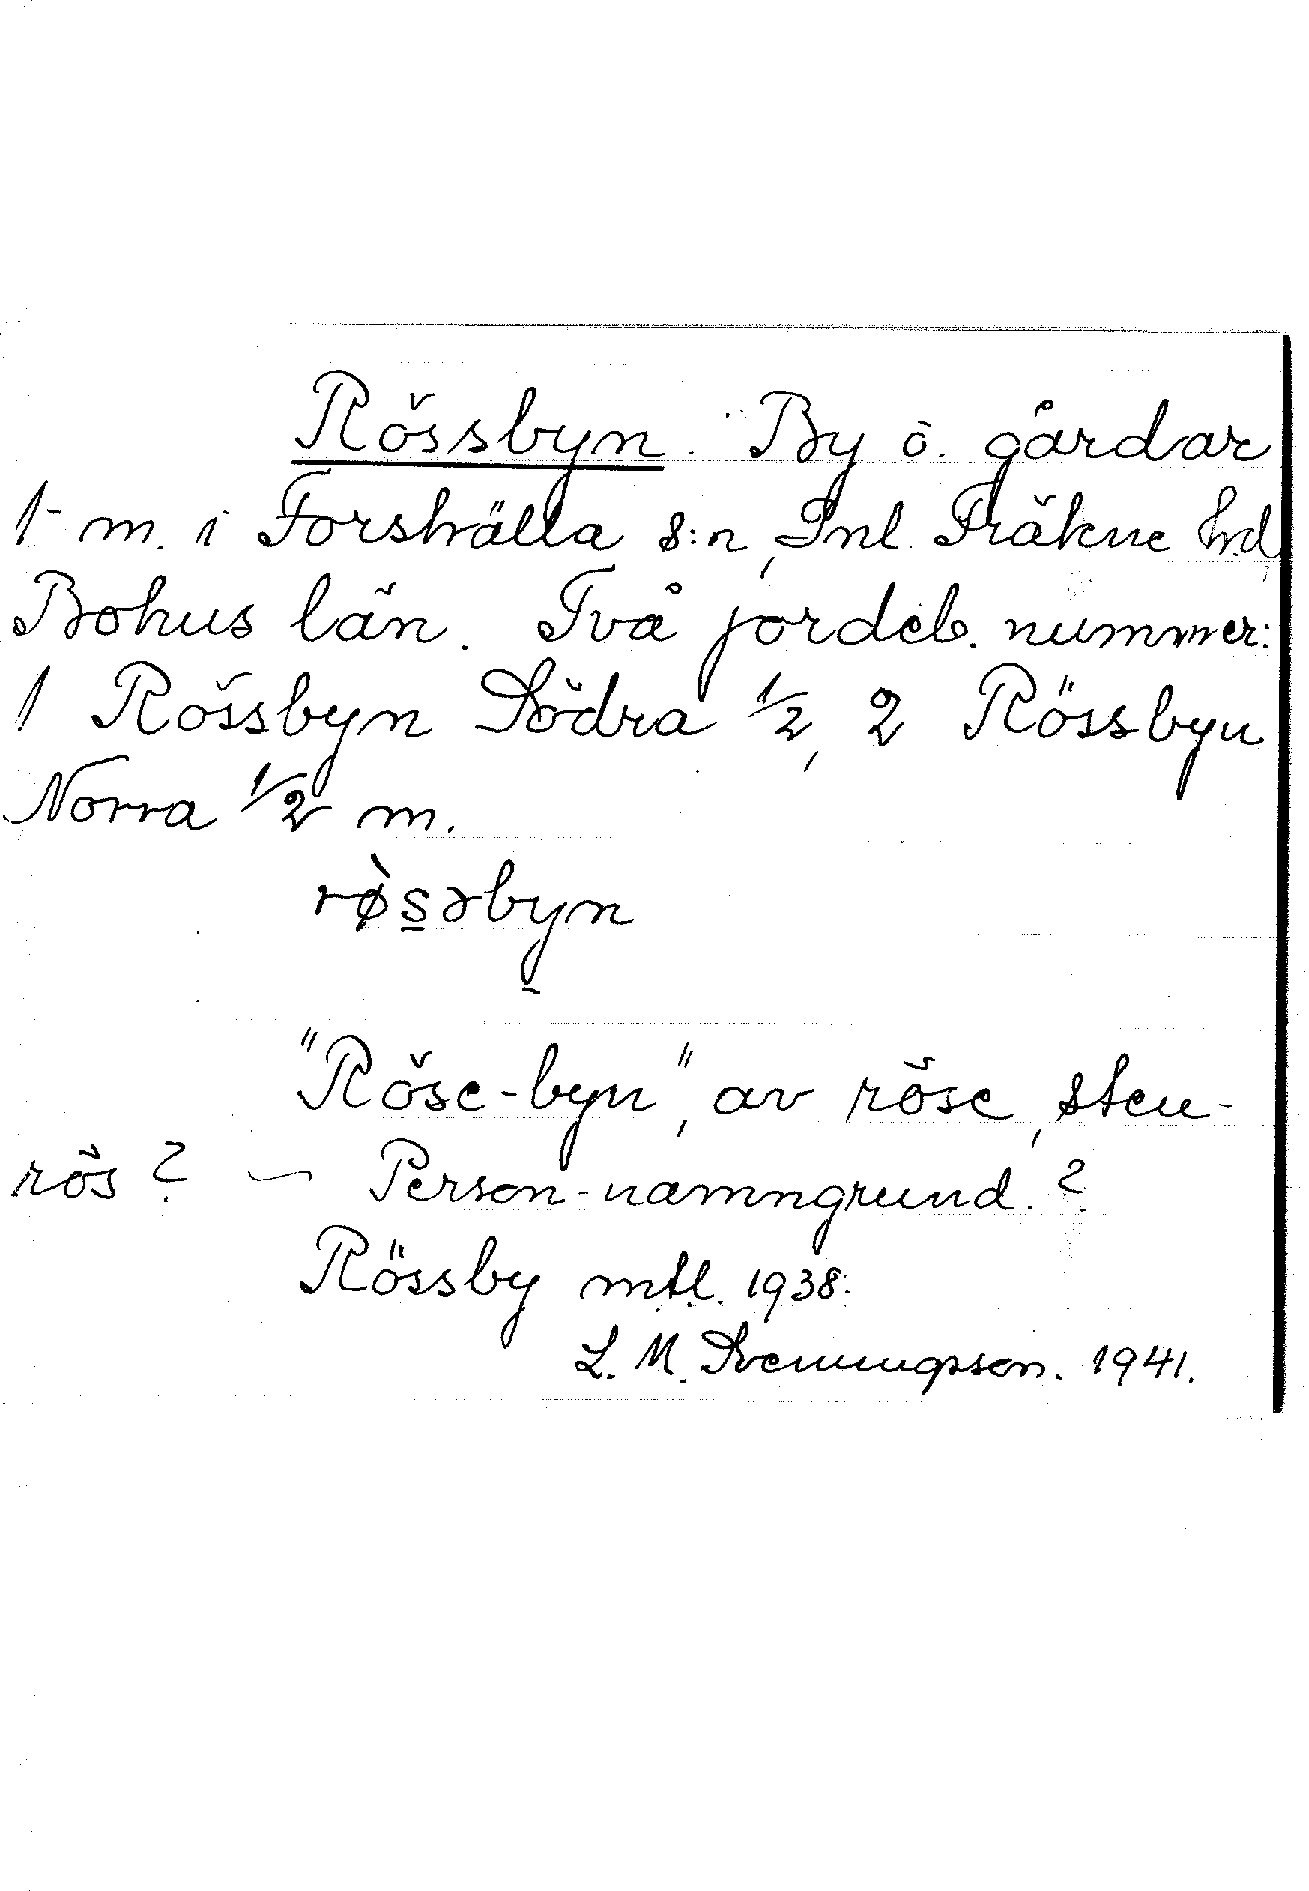 Rössbyn. By o. gårdar
1 m. i Forshälla s:n, Inl. Fräkne hd,
Bohus län. Två jordeb. nummer:
1 Rössbyn Södra 1/2, 2 Rössbyn
Norra 1/2 m.
rø̀s̲əby̠n
"Röse-byn", av röse, sten-
rös? — Person-namngrund.?
Rössby mtl. 1938.
L. M. Svenungsson. 1941.